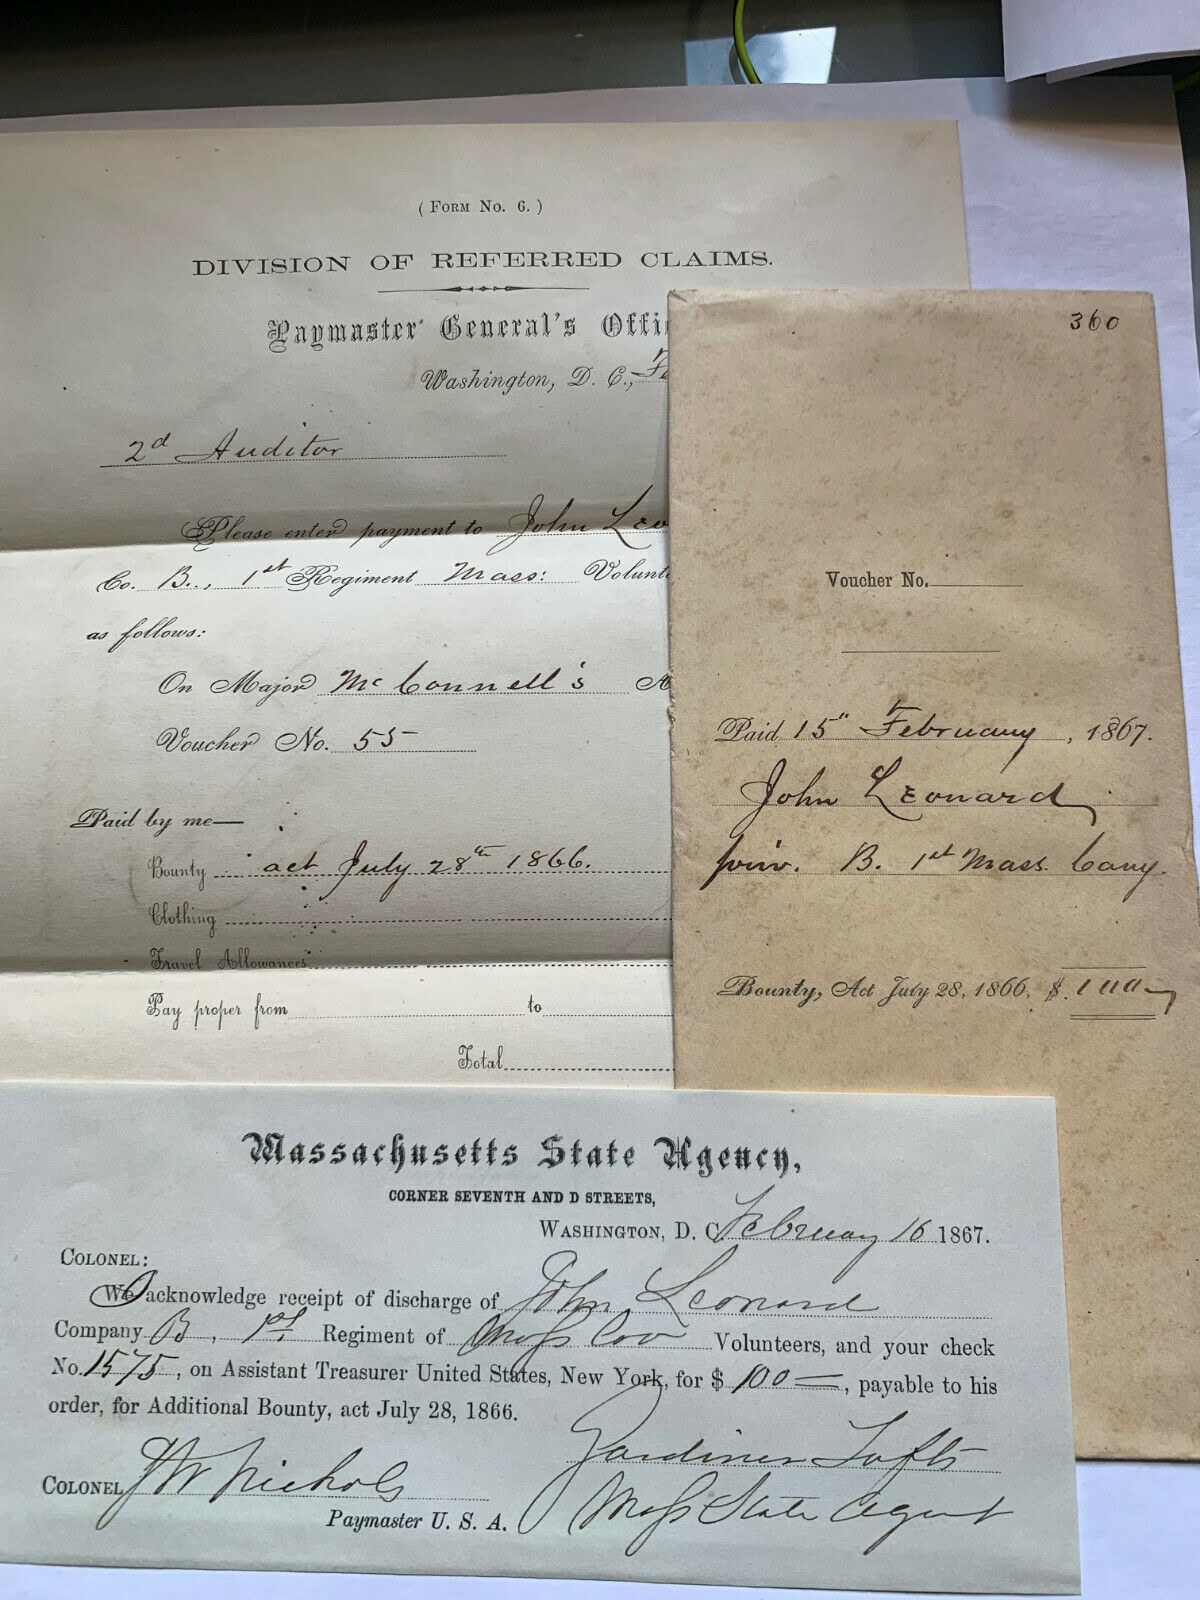 (Form No. 6.)
DIVISION OF REFERRED CLAIMS.
Paymaster General's Offi
Washington, D. C., Fe
2d Auditor
Please enter payment to John Leo
Co. B., 1st Regiment Mass: Volunt
as follows:
On Major McConnell's A
Voucher No. 55
Paid by me—
Bounty act July 28th 1866.
Clothing
Travel Allowances
Pay proper from to
Total
360
Voucher No.
Paid 15" February, 1867.
John Leonard
priv. B. 1st Mass. Cavy.
Bounty, Act July 28, 1866, $ 100
Massachusetts State Agency,
CORNER SEVENTH AND D STREETS,
Washington, D. C. February 16 1867.
Colonel:
We acknowledge receipt of discharge of John Leonard
Company B, 1st Regiment of Mass Cav Volunteers, and your check
No. 1575, on Assistant Treasurer United States, New York, for $ 100, payable to his
order, for Additional Bounty, act July 28, 1866.
Gardiner Tufts
Colonel Nichols
Mass State Agent
Paymaster U. S. A.